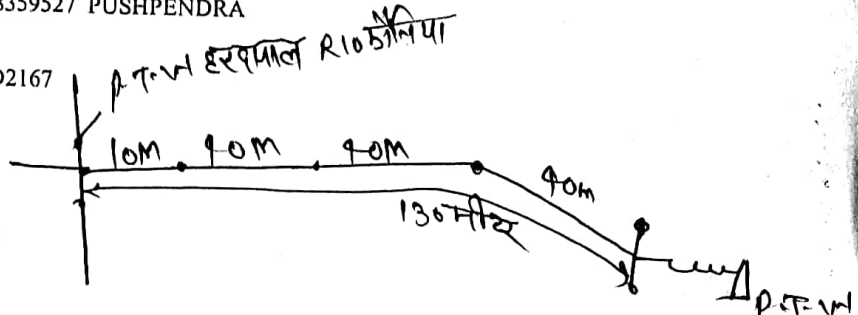 359527 PUSHPENDRA
2167
P.T.W हरपाल R/O
10M 40M 40M
40m
130 मीटर
P.T.W